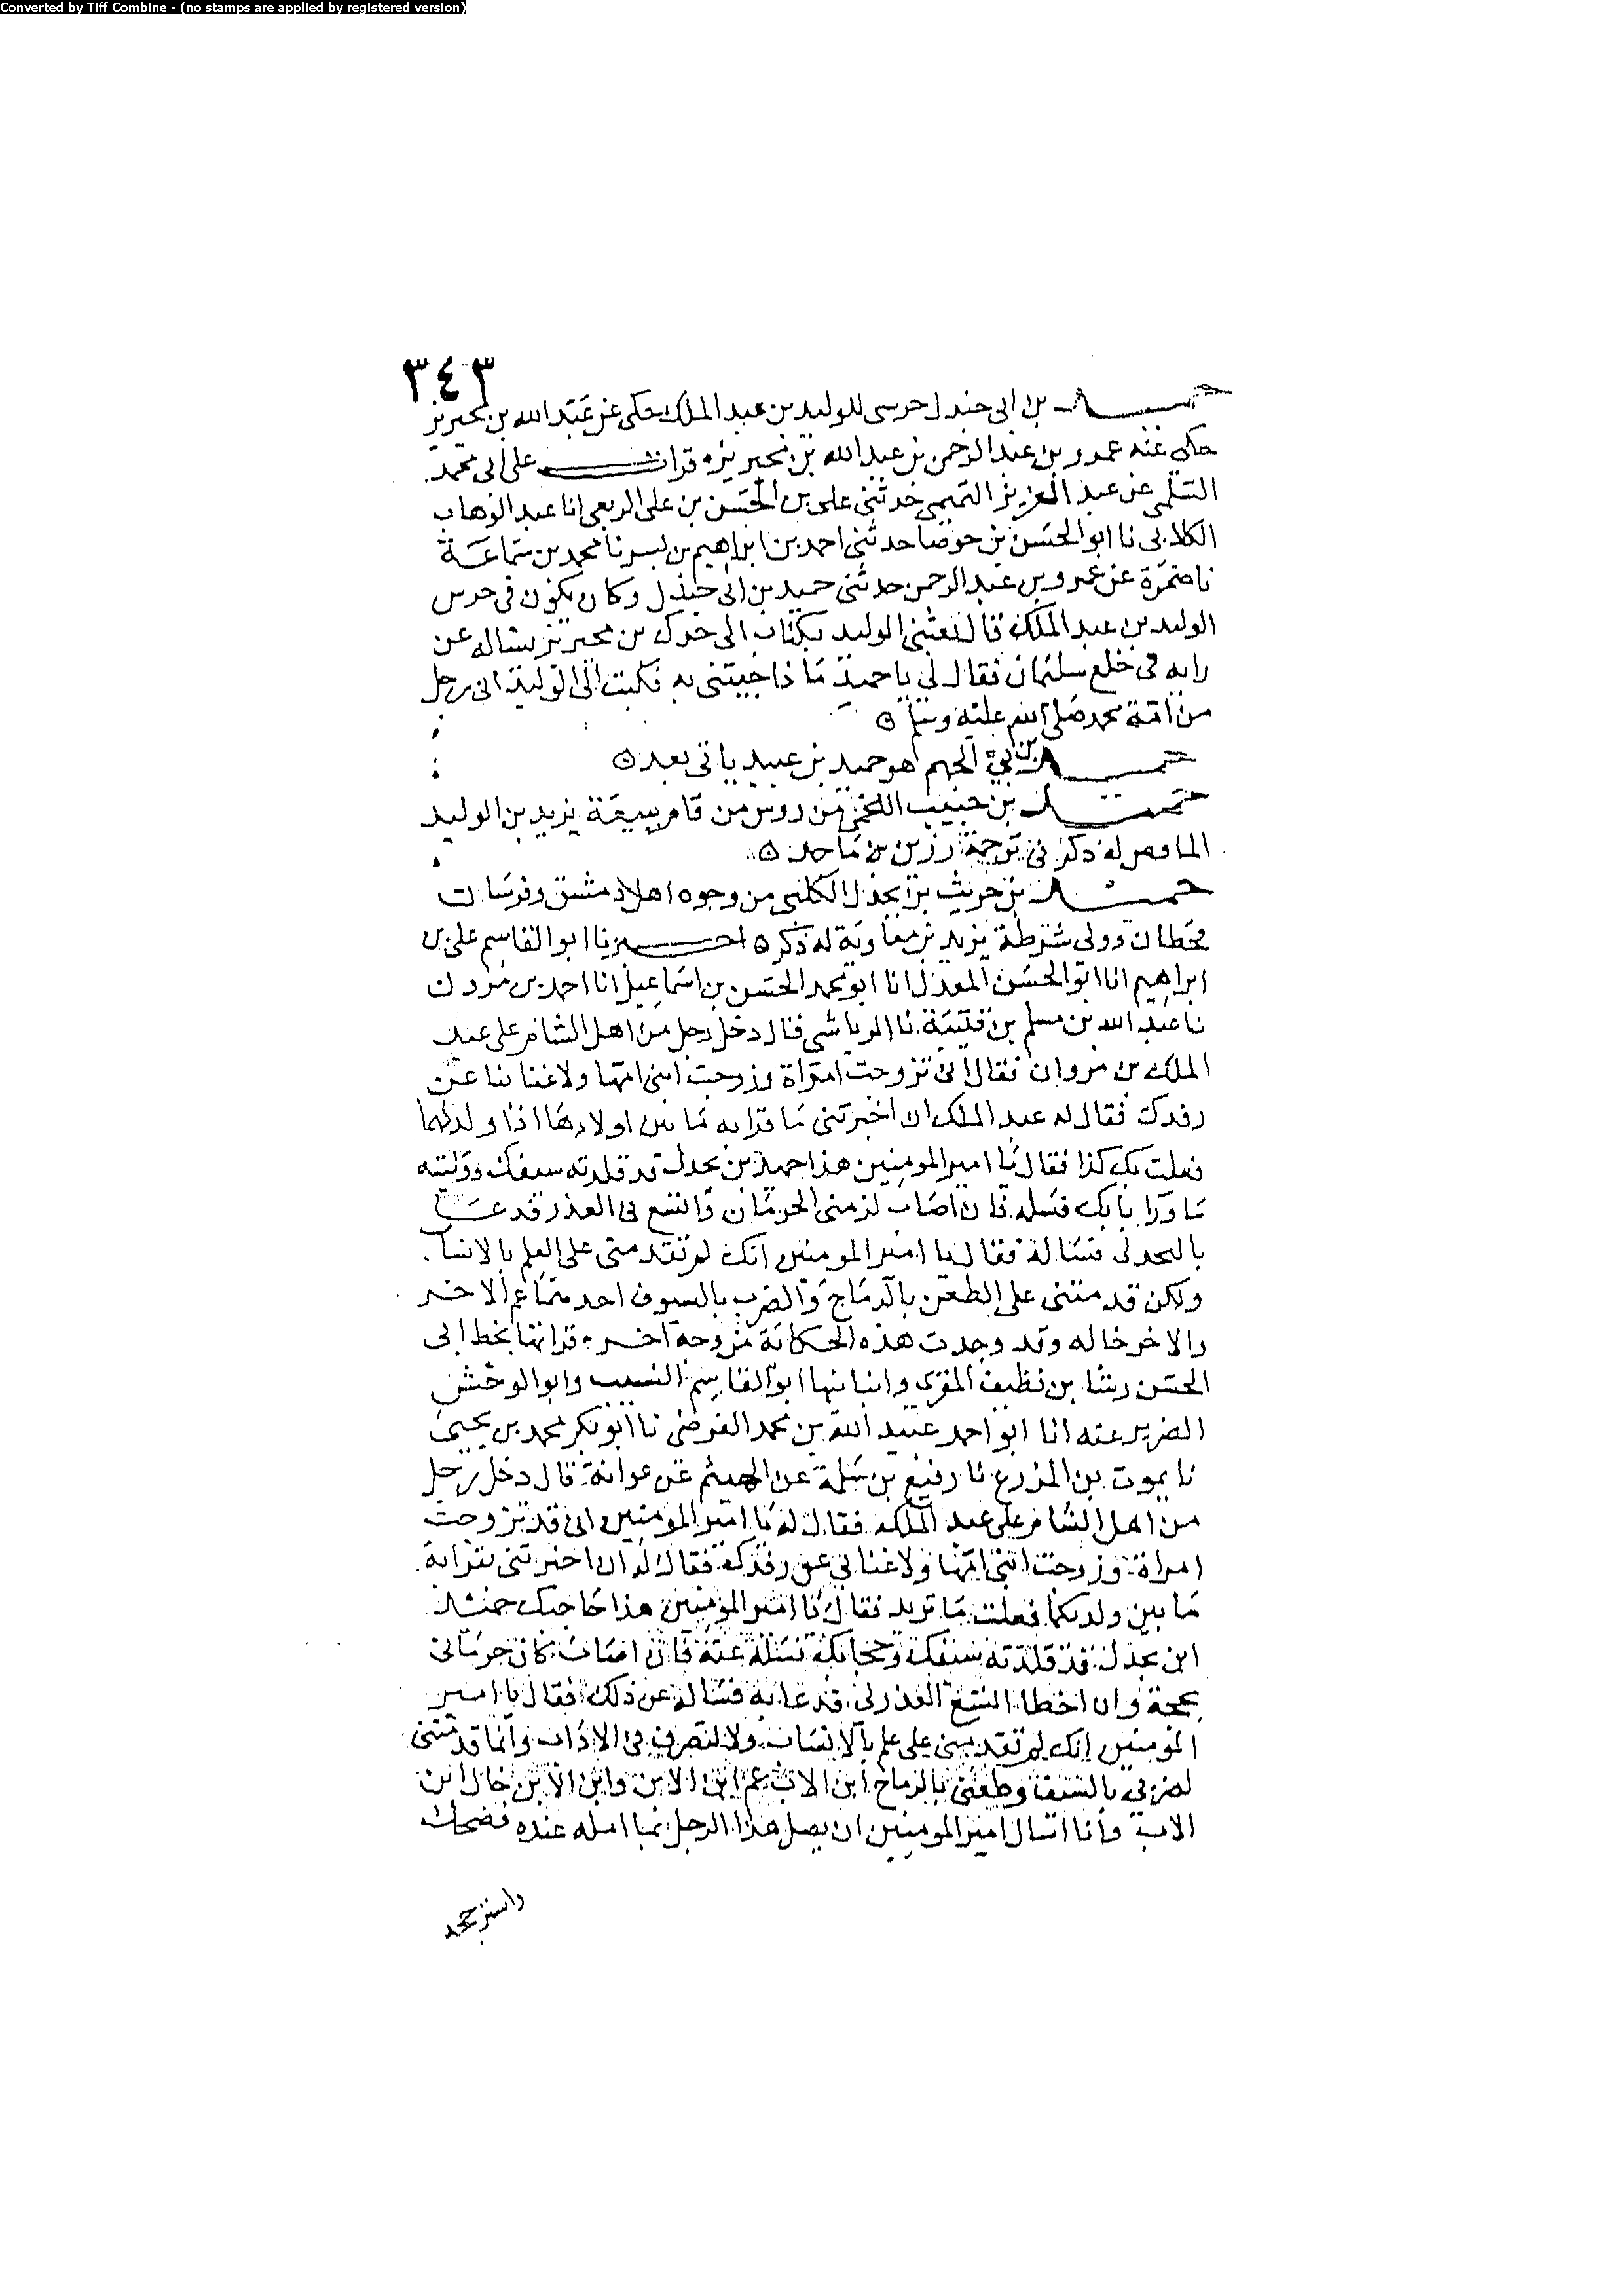 Converted by Tiff Combine - (no stamps are applied by registered version)
٣٤٣
حميد بن ابى جندل حرسى للوليد بن عبد الملك حكى عن عبد الله بن محيريز
حكى عنه عمرو بن عبد الرحمن بن عبد الله بن محيريز ه قرات على ابى محمد
السلمى عن عبد العزيز التميمى حدثنى على بن الحسن بن على الربعى انا عبد الوهاب
الكلابى نا ابو الحسن بن جوصا حدثنى احمد بن ابراهيم بن بسر نا محمد بن سماعة
نا ضمرة عن عمرو بن عبد الرحمن حدثنى حميد بن ابى جندل وكان يكون فى حرس
الوليد بن عبد الملك قال بعثنى الوليد بكتاب الى بن محيريز يساله عن
رايه فى خلع سليمان فقال لى يا حميد ما ذا جيتنى به فكتب الى الوليد انى رجل
من امة محمد صلى الله عليه وسلم ه
حميد بن ابى الجهم هو حميد بن عبيد ياتى بعد ه
حميد بن حبيب اللخمى من روس من قام ببيعة يزيد بن الوليد
الناقص له ذكر فى ترجمة رزين بن ماجد ه
حميد بن حريث بن بحدل الكلبى من وجوه اهل دمشق وفرسان
قحطان وولى شرطة يزيد بن معاوية له ذكر ه اخبرنا ابو القاسم على بن
ابراهيم انا ابو الحسن المعدل انا ابو محمد الحسن بن اسماعيل انا احمد بن مروان
نا عبد الله بن مسلم بن قتيبة نا الرياشى قال دخل رجل من اهل الشام على عبد
الملك بن مروان فقال انى تزوجت امراة وزوجت ابنى امها ولا غنا بنا عن
رفدك فقال له عبد الملك ان اخبرتنى ما قرابه ما بين اولادهما اذا ولدتهما
فعلت بك كذا فقال يا امير المومنين هذا حميد بن بحدل قد قلدته سيفك ووليته
ما ورا بابك فسله فان اصاب لزمنى الحرمان وان اتسع لى العذر فدعا
بالبحدلى فساله فقال يا امير المومنين انك لم تقدمنى على العلم بالانساب
ولكن قدمتنى على الطعن بالرماح والضرب بالسيوف احدهما عم الاخر
والاخر خاله وقد وجدت هذه الحكاية من وجه اخر ه قراتها بخط ابى
الحسن رشا بن نظيف المقرى وانبانيها ابو القاسم النسيب وابو الوحش
الضرير عنه انا ابو احمد عبيد الله بن محمد الفرضى نا ابو بكر محمد بن يحيى
نا يموت بن المزرع نا رفيع بن سلمة عن الهيثم عن عوانة قال دخل رجل
من اهل الشام على عبد الملك فقال له يا امير المومنين انى قد تزوجت
امراة وزوجت ابنى امها ولا غنا بى عن رفدك فقال له ان اخبرتنى بقرابة
ما بين ولديكما فعلت ما تريد فقال يا امير المومنين هذا حاجبك حميد
ابن بحدل قد قلدته سيفك وحجابك تسله عنه فان اصاب كان حرمانى
بحجة وان اخطا اتسع العذر لى فدعا به فساله عن ذلك فقال يا امير
المومنين انك لم تقدمنى على علم بالانساب ولا لتصرف فى الاداب وانما قدمتنى
لضربى بالسيف وطعنى بالرماح ابن الاب عم ابن الابن وابن الابن خال ابن
الاب وانا اسال امير المومنين ان يصل هذا الرجل بما امله عنده فضحك